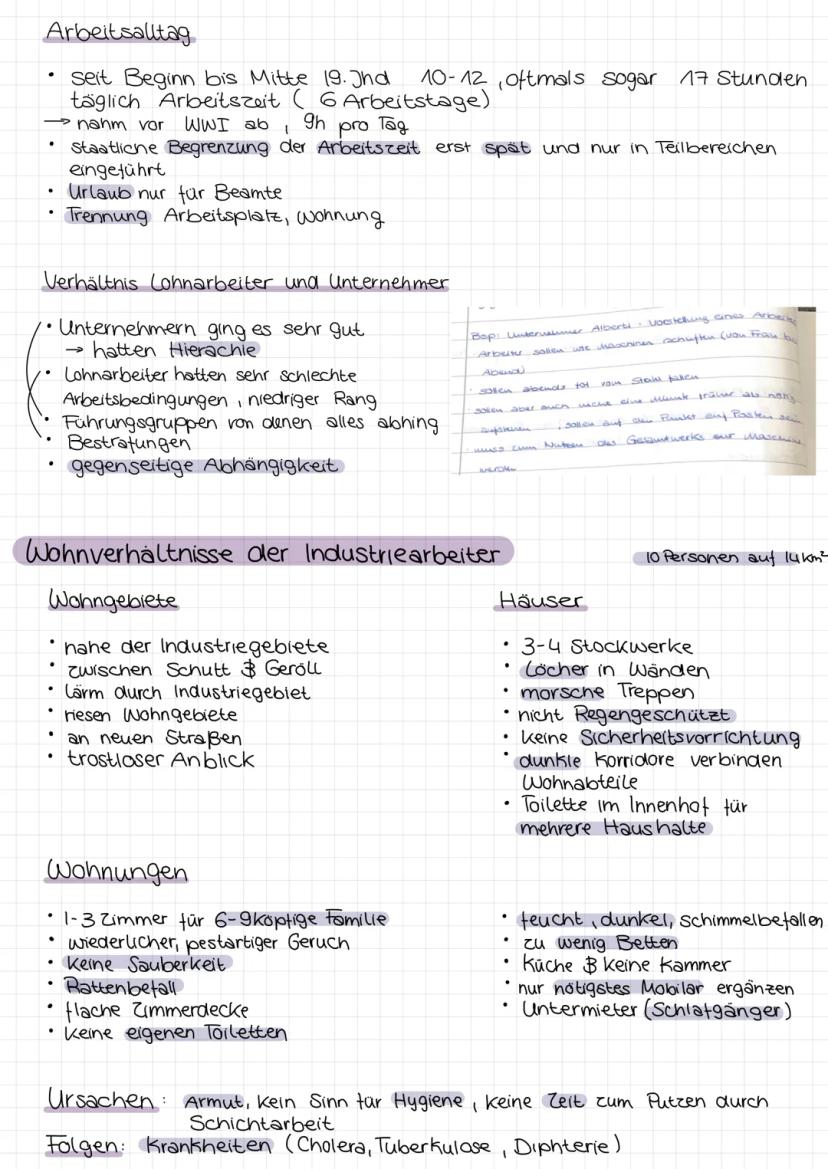 Arbeitsalltag
• seit Beginn bis Mitte 19. Jhd 10-12, oftmals sogar 17 Stunden
täglich Arbeitszeit ( 6 Arbeitstage)
→ nahm vor WWI ab, 9h pro Tag
• staatliche Begrenzung der Arbeitszeit erst spät und nur in Teilbereichen
eingeführt
• Urlaub nur für Beamte
• Trennung Arbeitsplatz, Wohnung
Verhältnis Lohnarbeiter und Unternehmer
• Unternehmern ging es sehr gut
→ hatten Hierachie
• Lohnarbeiter hatten sehr schlechte
Arbeitsbedingungen, niedriger Rang
• Führungsgruppen von denen alles abhing
• Bestrafungen
• gegenseitige Abhängigkeit
Bsp: Unternehmer Alberti: Vorstellung eines Arbeite
Arbeiter sollen wie Maschinen schuften (von Früh bis
Abend)
• sollen abends tot vom Stuhl fallen
sollen aber auch nicht eine Minute früher als nötig
aufstehen, sollen auf den Punkt auf Posten sein
• muss zum Nutzen des Gesamtwerks zur Maschine
werden
Wohnverhältnisse der Industriearbeiter
10 Personen auf 14km²
Wohngebiete
• nahe der Industriegebiete
• zwischen Schutt & Geröll
• Lärm durch Industriegebiet
• riesen Wohngebiete
• an neuen Straßen
• trostloser Anblick
Häuser
• 3-4 Stockwerke
• Löcher in Wänden
• morsche Treppen
• nicht Regengeschützt
• keine Sicherheitsvorrichtung
• dunkle Korridore verbinden
Wohnabteile
• Toilette im Innenhof für
mehrere Haushalte
Wohnungen
• 1-3 Zimmer für 6-9köpfige Familie
• wiederlicher, pestartiger Geruch
• keine Sauberkeit
• Rattenbefall
• flache Zimmerdecke
• keine eigenen Toiletten
• feucht, dunkel, schimmelbefallen
• zu wenig Betten
• Küche & keine Kammer
• nur nötigstes Mobilar ergänzen
• Untermieter (Schlafgänger)
Ursachen: Armut, kein Sinn für Hygiene, keine Zeit zum Putzen durch
Schichtarbeit
Folgen: Krankheiten (Cholera, Tuberkulose, Diphterie)